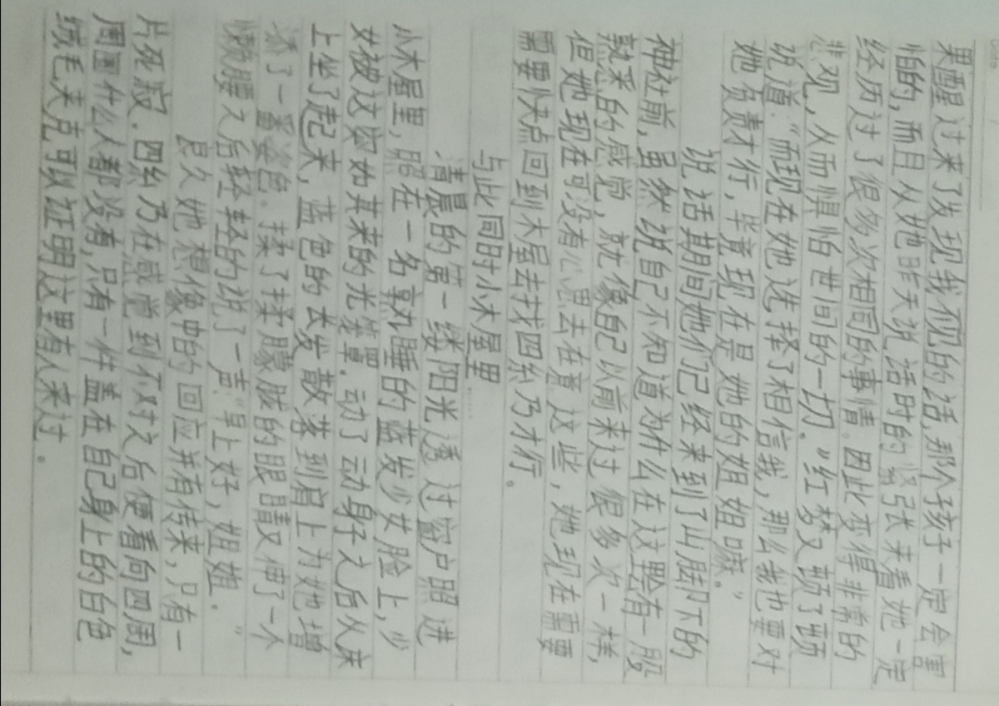 果醒过来了发现我不现的话,那个孩子一定会害
怕的,而且从她昨天说话时的紧张来看她一定
经历过了很多次相同的事情。因此变得非常的
悲观,从而惧怕世间的一切。”红梦又顿了顿
说道:“而现在她选择了相信我,那么我也要对
她负责才行,毕竟现在是她的姐姐嘛。”
说话期间她们已经来到了山脚下的
神社前,虽然说自己不知道为什么在这里有一股
熟悉的感觉,就像自己以前来过很多次一样,
但她现在可没有心思去在意这些,她现在需要
需要快点回到木屋去找四糸乃才行。
与此同时小木屋里......
清晨的第一缕阳光透过窗户照进
小木屋里,照在一名熟睡的蓝发少女脸上,少
女被这突如其来的光笼罩。动了动身子之后从床
上坐了起来,蓝色的长发散落到肩上为她增
添了一番姿色。揉了揉朦胧的眼睛又伸了一个
懒腰之后轻轻的说了一声:“早上好,姐姐。”
良久她想像中的回应并有传来,只有一
片死寂。四糸乃在感觉到不对之后便看向四周,
周围什么人都没有,只有一件盖在自己身上的白色
绒毛大克可以证明这里有人来过。